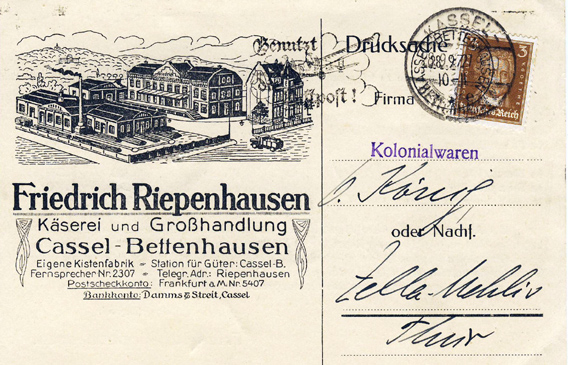 Benutzt
Drucksache
post!
Firma
KASSEL
3
Deutsches Reich
Kolonialwaren
König
oder Nachf.
Zella-Mehlis
Thür
Friedrich Riepenhausen
Käserei und Großhandlung
Cassel-Bettenhausen
Eigene Kistenfabrik - Station für Güter: Cassel-B.
Fernsprecher Nr. 2307 - Telegr. Adr.: Riepenhausen
Postscheckkonto: Frankfurt a. M. Nr. 5407
Bankkonto: Damms & Streit, Cassel